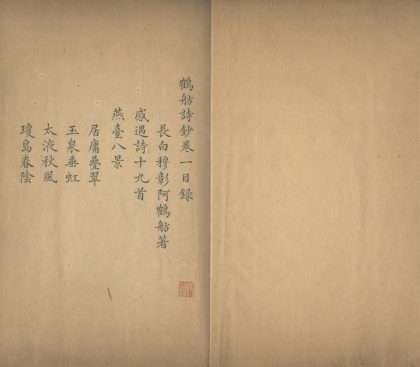 鶴舫詩鈔卷一目録
長白穆彰阿鶴舫著
感遇詩十九首
燕臺八景
居庸疊翠
玉泉垂虹
太液秋風
瓊島春陰